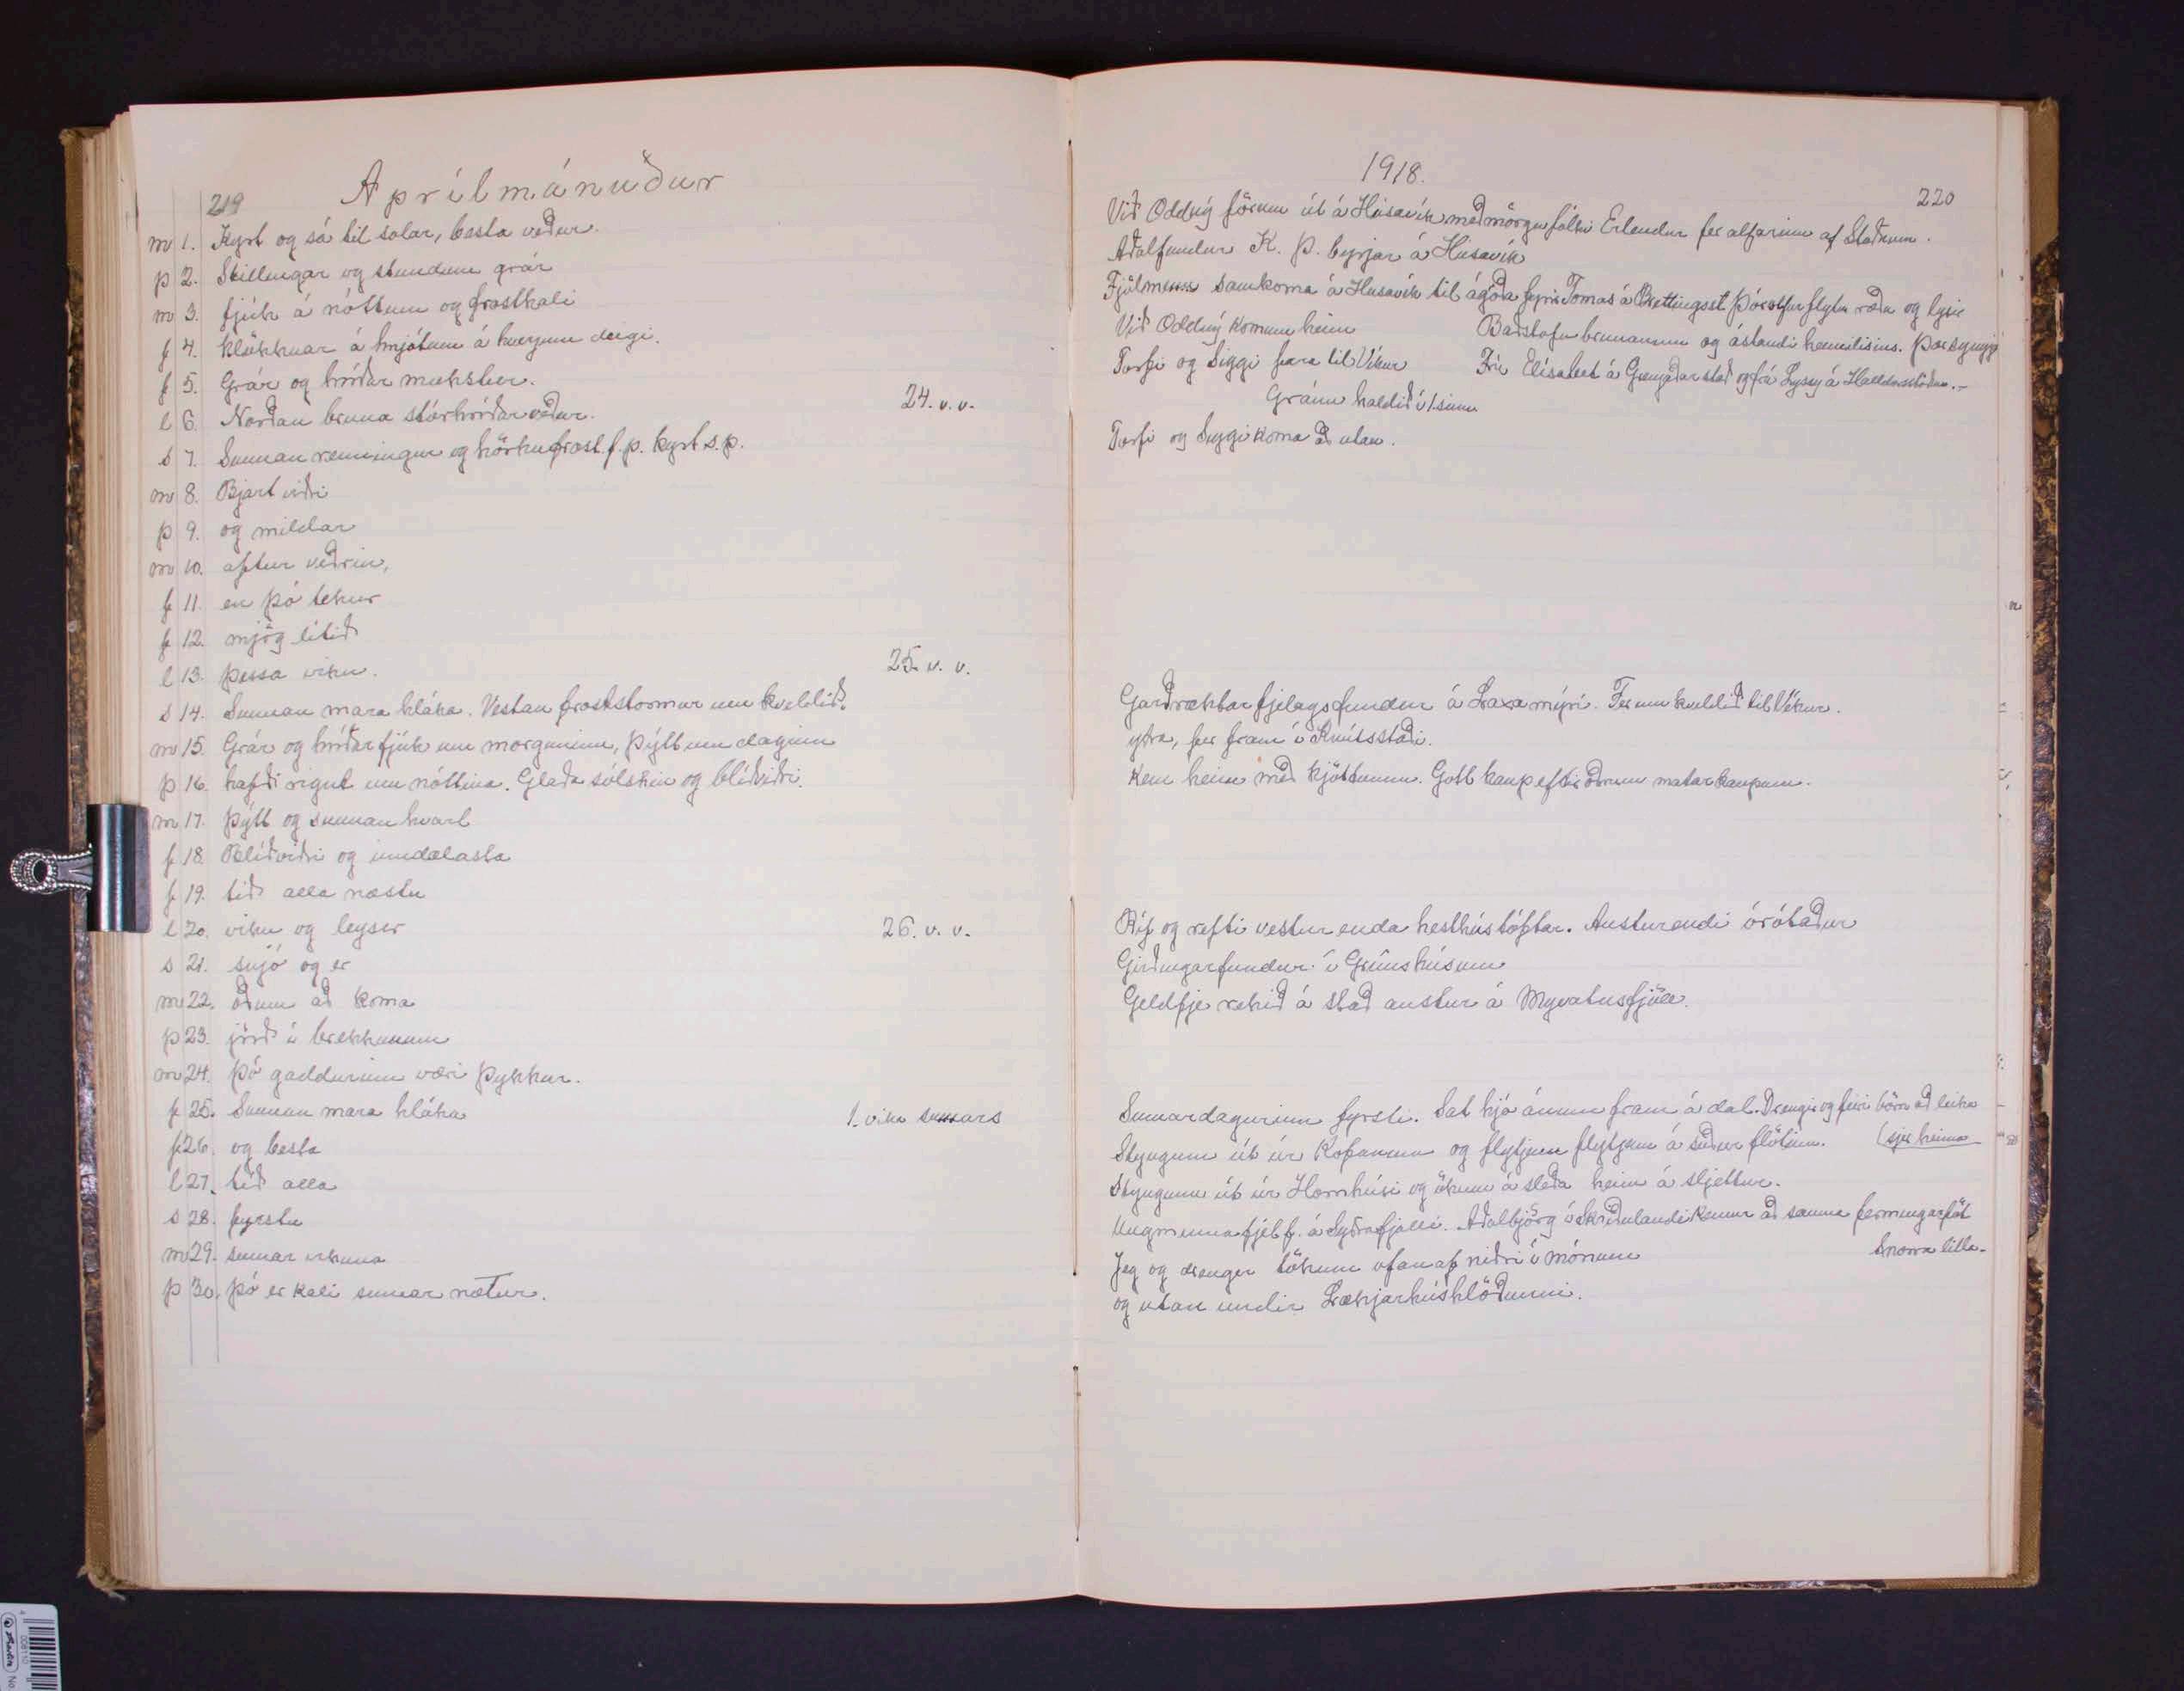 219 Aprílmánuður
m 1. Kyrt og sá til sólar, besta veður.
þ 2. Stillingar og stundum grár
m 3. fjúk á nóttum og frostkali
f 4. klökknar á hnjótum á hverjum degi.
f 5. Grár og hríðar mukstur.
l 6. Norðan bruna stórhríðarveður. 24. v. v.
s 7. Sunnan renningur og hörkufrost f. p. kyrt s. p.
m 8. Bjart viðri
þ 9. og mildar
m 10. aftur veðrin,
f 11. en þó tekur
f 12. mjög lítið
l 13. þessa viku. 25. v. v.
s 14. Sunnan mara hláka. Vestan froststormur um kveldið.
m 15. Grár og hríðarfjúk um morguninn, þýtt um daginn
þ 16. hafði rignt um nóttina. Glaða sólskin og blíðviðri.
m 17. þýtt og sunnan hvarl
f 18. Blíðviðri og inndælasta
f 19. tíð alla næstu
l 20. viku og leysir 26. v. v.
s 21. snjó og er
m 22. óðum að koma
þ 23. jörð í brekkunum
m 24. þó gaddurinn væri þykkur.
f 25. Sunnan mara hláka 1. vika sumars
f 26. og besta
l 27. tíð alla
s 28. fyrstu
m 29. sumar vikuna
þ 30. þó er kali sumar nætur.
1918.
220
Við Oddný förum út á Húsavík með mörgu fólki Erlendur fer alfarinn af Staðnum.
Aðalfundur K. Þ. byrjar á Húsavík
Fjölmenn samkoma á Húsavík til ágóða fyrir Tomas á Brettingsst. Þórólfur flytur ræðu og lýsir
Við Oddný komum heim Baðstofu brunanum og ástandi heimilisins. Þar syngja
Torfi og Siggi fara til Víkur Frú Elísabet á Grenjaðarstað og frú Lyssy á Halldórsstöðum.-
Gránu haldið í 1. sinn
Torfi og Siggi koma að utan.
Garðræktarfjelagsfundur á Laxamýri. Fer um kveldið til Víkur.
ytra, fer fram í Knútsstaði.
Kem heim með kjöttunnu. Gott kaup eftir öðrum matarkaupum.
Ríf og refti vestur enda hesthústóftar. Austurendi órótaður
Girðingarfundur í Grímshúsum
Geldfje rekið á stað austur á Mývatnsfjöll.
Sumardagurinn fyrsti. Sat hjá ánum fram á dal. Drengir og fleiri börn að leika
Styngum út úr Kofanum og flytjum flytjum á suður flötinn. (sjer heima
Styngum út úr Hornhúsi og ökum á sleða heim á sljettur.
Ungmennafjel f. á Syðrafjalli. Aðalbjörg í Skriðulandi kemur að sauma fermingarföt
Jeg og drengir tökum ofanaf niðri í mónum Snorra litla.
og utan undir Lækjarhúshlöðunni.